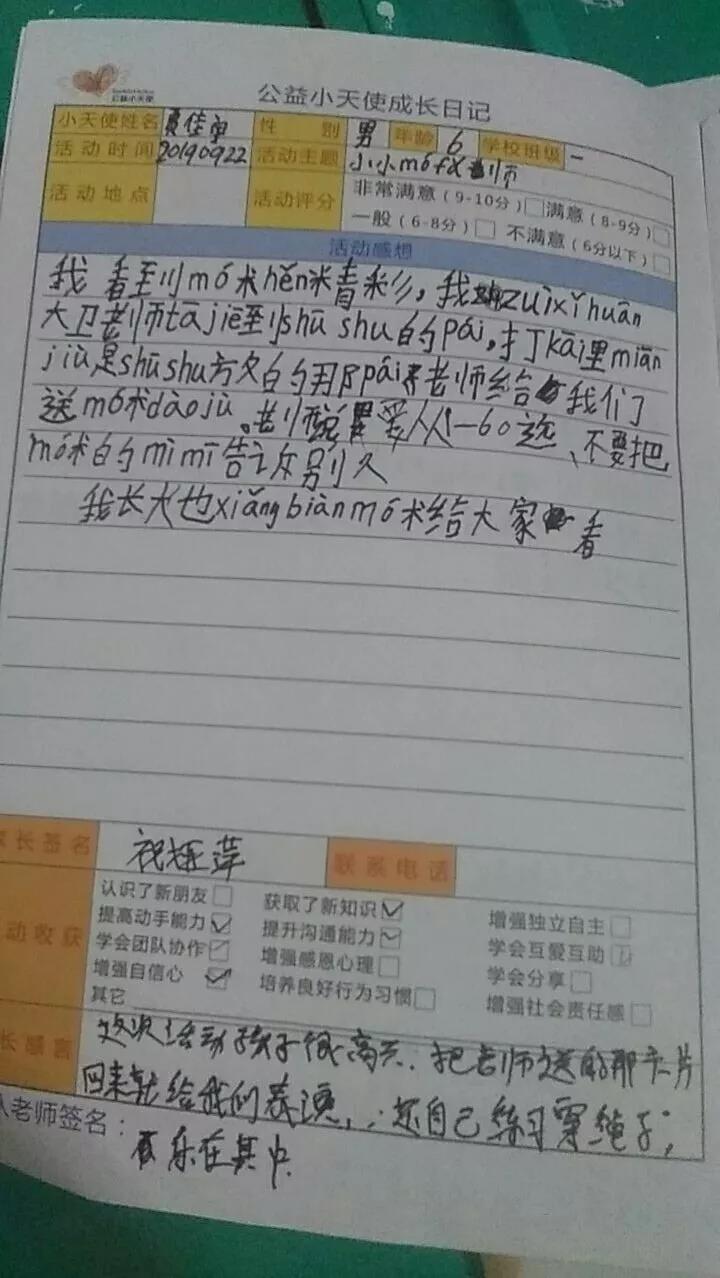 公益小天使
公益小天使成长日记
小天使姓名 性别 男 年龄 6 学校班级 一
活动时间 20190922 活动主题 小小mófǎ师
活动地点 活动评分 非常满意（9-10分）□ 满意（8-9分）□
一般（6-8分）□ 不满意（6分以下）□
活动感想
我看到mó术hěn精彩，我zuìxǐhuān
大卫老师tā jiē到shūshu的pái，打kāi里miàn
jiù是shūshu方夕的那pái老师给我们
送mó术dàojù。老师说要人人一60选、不要把
mó术的mìmī告诉别人
我长大也xiǎngbiànmó术给大家看
长签名 联系电话
动收获 认识了新朋友□ 获取了新知识☑ 增强独立自主□
提高动手能力☑ 提升沟通能力☑ 学会互爱互助☑
学会团队协作☑ 增强感恩心理□ 学会分享□
增强自信心☑ 培养良好行为习惯□ 增强社会责任感□
其它
长感言 这次活动孩子很高兴．把老师送的那卡片
回来就给我们表演，还自己练习穿绳子，
老师签名： 乐在其中